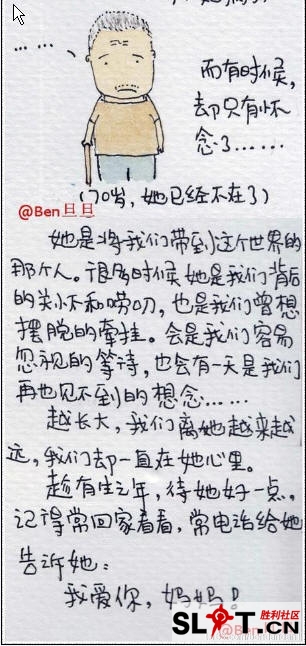 而有时候，
却只有怀
念了……
(70岁，她已经不在了)
@Ben旦旦
她是将我们带到这个世界的
那个人。很多时候她是我们背后
的关怀和唠叨，也是我们曾想
摆脱的牵挂。会是我们容易
忽视的等待，也会有一天是我们
再也见不到的想念……
越长大，我们离她越来越
远，我们却一直在她心里。
趁有生之年，待她好一点，
记得常回家看看，常电话给她
告诉她：
我爱你，妈妈！
胜利社区
SL★T.CN
@Ben